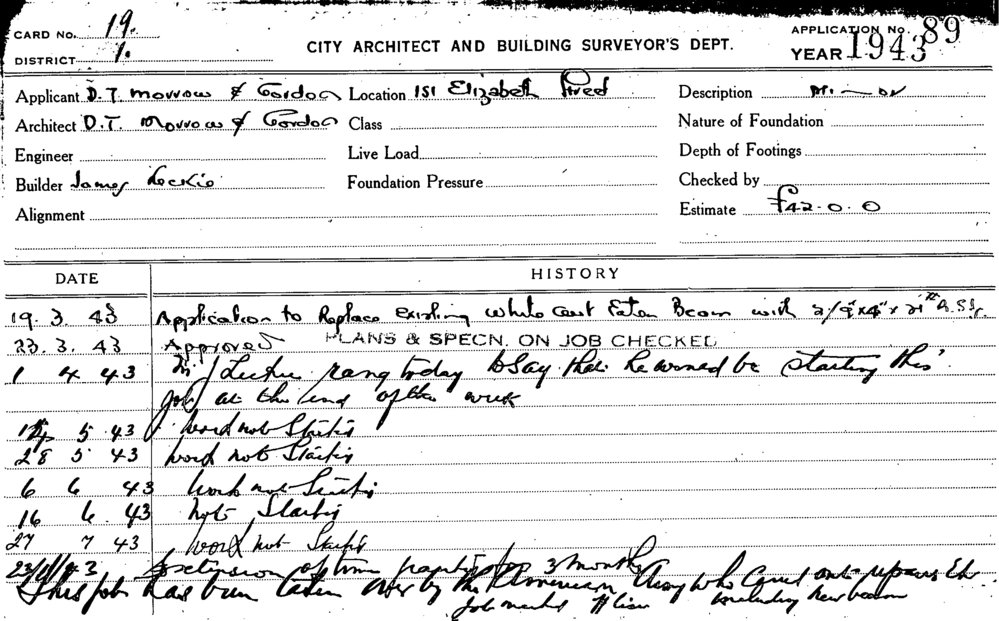 CARD No. 19.
DISTRICT 1.
CITY ARCHITECT AND BUILDING SURVEYOR'S DEPT.
APPLICATION No. 89
YEAR 1943
Applicant D.T. Morrow & Gordon Location 151 Elizabeth Street Description Minor
Architect D.T. Morrow & Gordon Class Nature of Foundation
Engineer Live Load Depth of Footings
Builder James Leckie Foundation Pressure Checked by
Alignment Estimate £42.0.0
DATE HISTORY
19. 3. 43 Application to Replace existing white ant Eaten Beam with 2/9"x4"x21
23. 3. 43 Approved PLANS & SPECN. ON JOB CHECKED
1 4 43 rang today to say that he would be starting this
job at the end of the week
5 43 work not Started
28 5 43 work not Started
6 6 43 work not Started
16 6 43 not Started
27 7 43 work not Started
23/11/43 extension of time granted for 3 months
This job has been taken over by the American Army who carried out repairs etc
including new beam
Job marked off